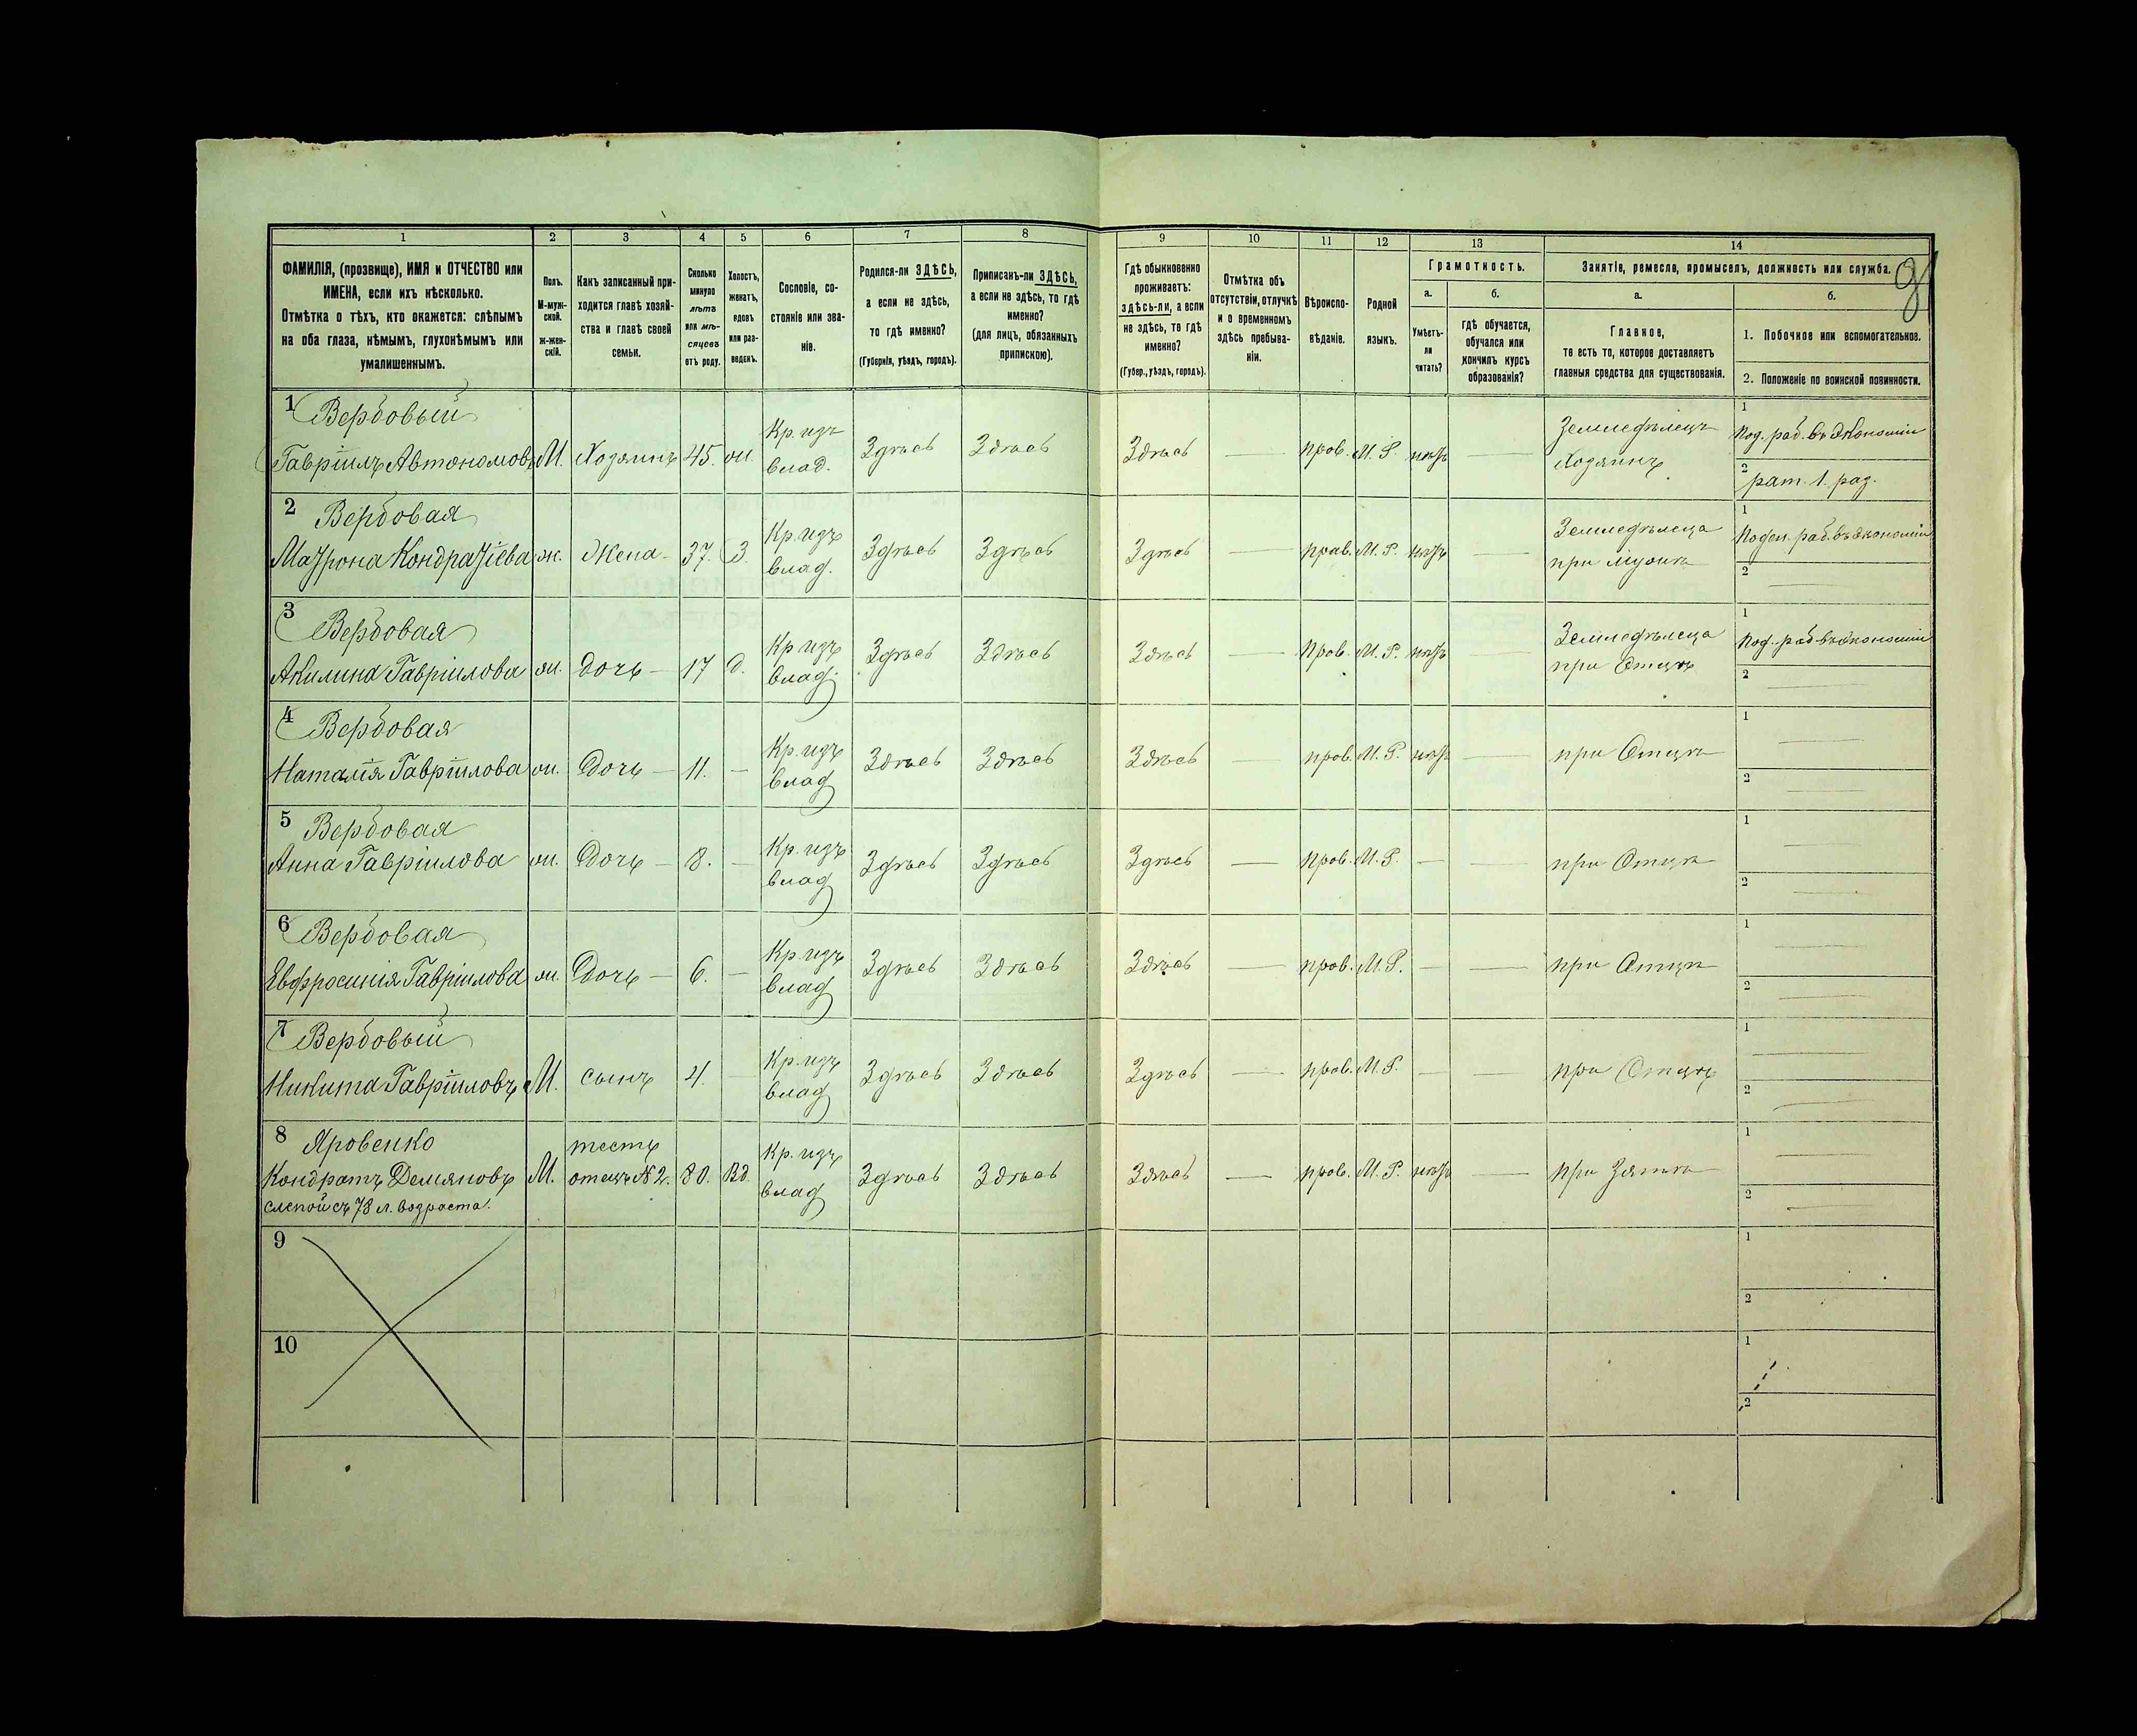 9
1
2
3
4
5
6
7
8
9
10
11
12
13
14
ФАМИЛІЯ, (прозвище), ИМЯ и ОТЧЕСТВО или
ИМЕНА, если ихъ нѣсколько.
Отмѣтка о тѣхъ, кто окажется: слѣпымъ
на оба глаза, нѣмымъ, глухонѣмымъ или
умалишеннымъ.
Полъ.
М-муж-
ской.
ж-жен-
скій.
Какъ записанный при-
ходится главѣ хозяй-
ства и главѣ своей
семьи.
Сколько
минуло
лѣтъ
или мѣ-
сяцевъ
отъ роду.
Холостъ,
женатъ,
вдовъ
или раз-
веденъ.
Сословіе, со-
стояніе или зва-
ніе.
Родился-ли ЗДѢСЬ,
а если не здѣсь,
то гдѣ именно?
(Губернія, уѣздъ, городъ).
Приписанъ-ли ЗДѢСЬ,
а если не здѣсь, то гдѣ
именно?
(для лицъ, обязанныхъ
припискою).
Гдѣ обыкновенно
проживаетъ:
здѣсь-ли, а если
не здѣсь, то гдѣ
именно?
(Губер., уѣздъ, городъ).
Отмѣтка объ
отсутствіи, отлучкѣ
и о временномъ
здѣсь пребыва-
ніи.
Вѣроиспо-
вѣданіе.
Родной
языкъ.
Грамотность.
а.
Умѣетъ-
ли
читать?
б.
гдѣ обучается,
обучался или
кончилъ курсъ
образованія?
Занятіе, ремесло, промыселъ, должность или служба.
а.
Главное,
то есть то, которое доставляетъ
главныя средства для существованія.
б.
1. Побочное или вспомогательное.
2. Положеніе по воинской повинности.
1 Вербовый
Гавріилъ Автономовъ М. Хозяинъ 45. ж. Кр. изъ влад. Здѣсь Здѣсь Здѣсь — пров. М. Р. нѣтъ — Земледѣлецъ Хозяинъ
1 Под. раб. въ экономіи
2 рат. 1. раз.
2 Вербовая
Матрона Кондратіева ж. Жена — 37. З. Кр. изъ влад. Здѣсь Здѣсь Здѣсь — прав. М. Р. нѣтъ — Земледѣлица при мужѣ
1 Поден. раб. въ экономіи
2 —
3 Вербовая
Акилина Гавріилова ж. Дочь — 17 д. Кр. изъ влад. Здѣсь Здѣсь Здѣсь — пров. М. Р. нѣтъ — Земледѣлица при Отцѣ
1 Под. раб. въ экономіи
2 —
4 Вербовая
Наталія Гавріилова ж. Дочь — 11. — Кр. изъ влад Здѣсь Здѣсь Здѣсь — пров. М. Р. нѣтъ — при Отцѣ
1 —
2 —
5 Вербовая
Анна Гавріилова ж. Дочь — 8. — Кр. изъ влад Здѣсь Здѣсь Здѣсь — пров. М. Р. — — при Отцѣ
1 —
2 —
6 Вербовая
Евфросинія Гавріилова ж. Дочь — 6. — Кр. изъ влад Здѣсь Здѣсь Здѣсь — пров. М. Р. — — при Отцѣ
1 —
2 —
7 Вербовый
Никита Гавріиловъ М. сынъ 4. — Кр. изъ влад Здѣсь Здѣсь Здѣсь — пров. М. Р. — — при Отцѣ
1 —
2 —
8 Яровенко
Кондратъ Демяновъ М. тесть отецъ №2. 80. Вд. Кр. изъ влад Здѣсь Здѣсь Здѣсь — пров. М. Р. нѣтъ — при Зятѣ
слепой съ 78 л. возраста.
1
2 —
9
1
2
10
1
2